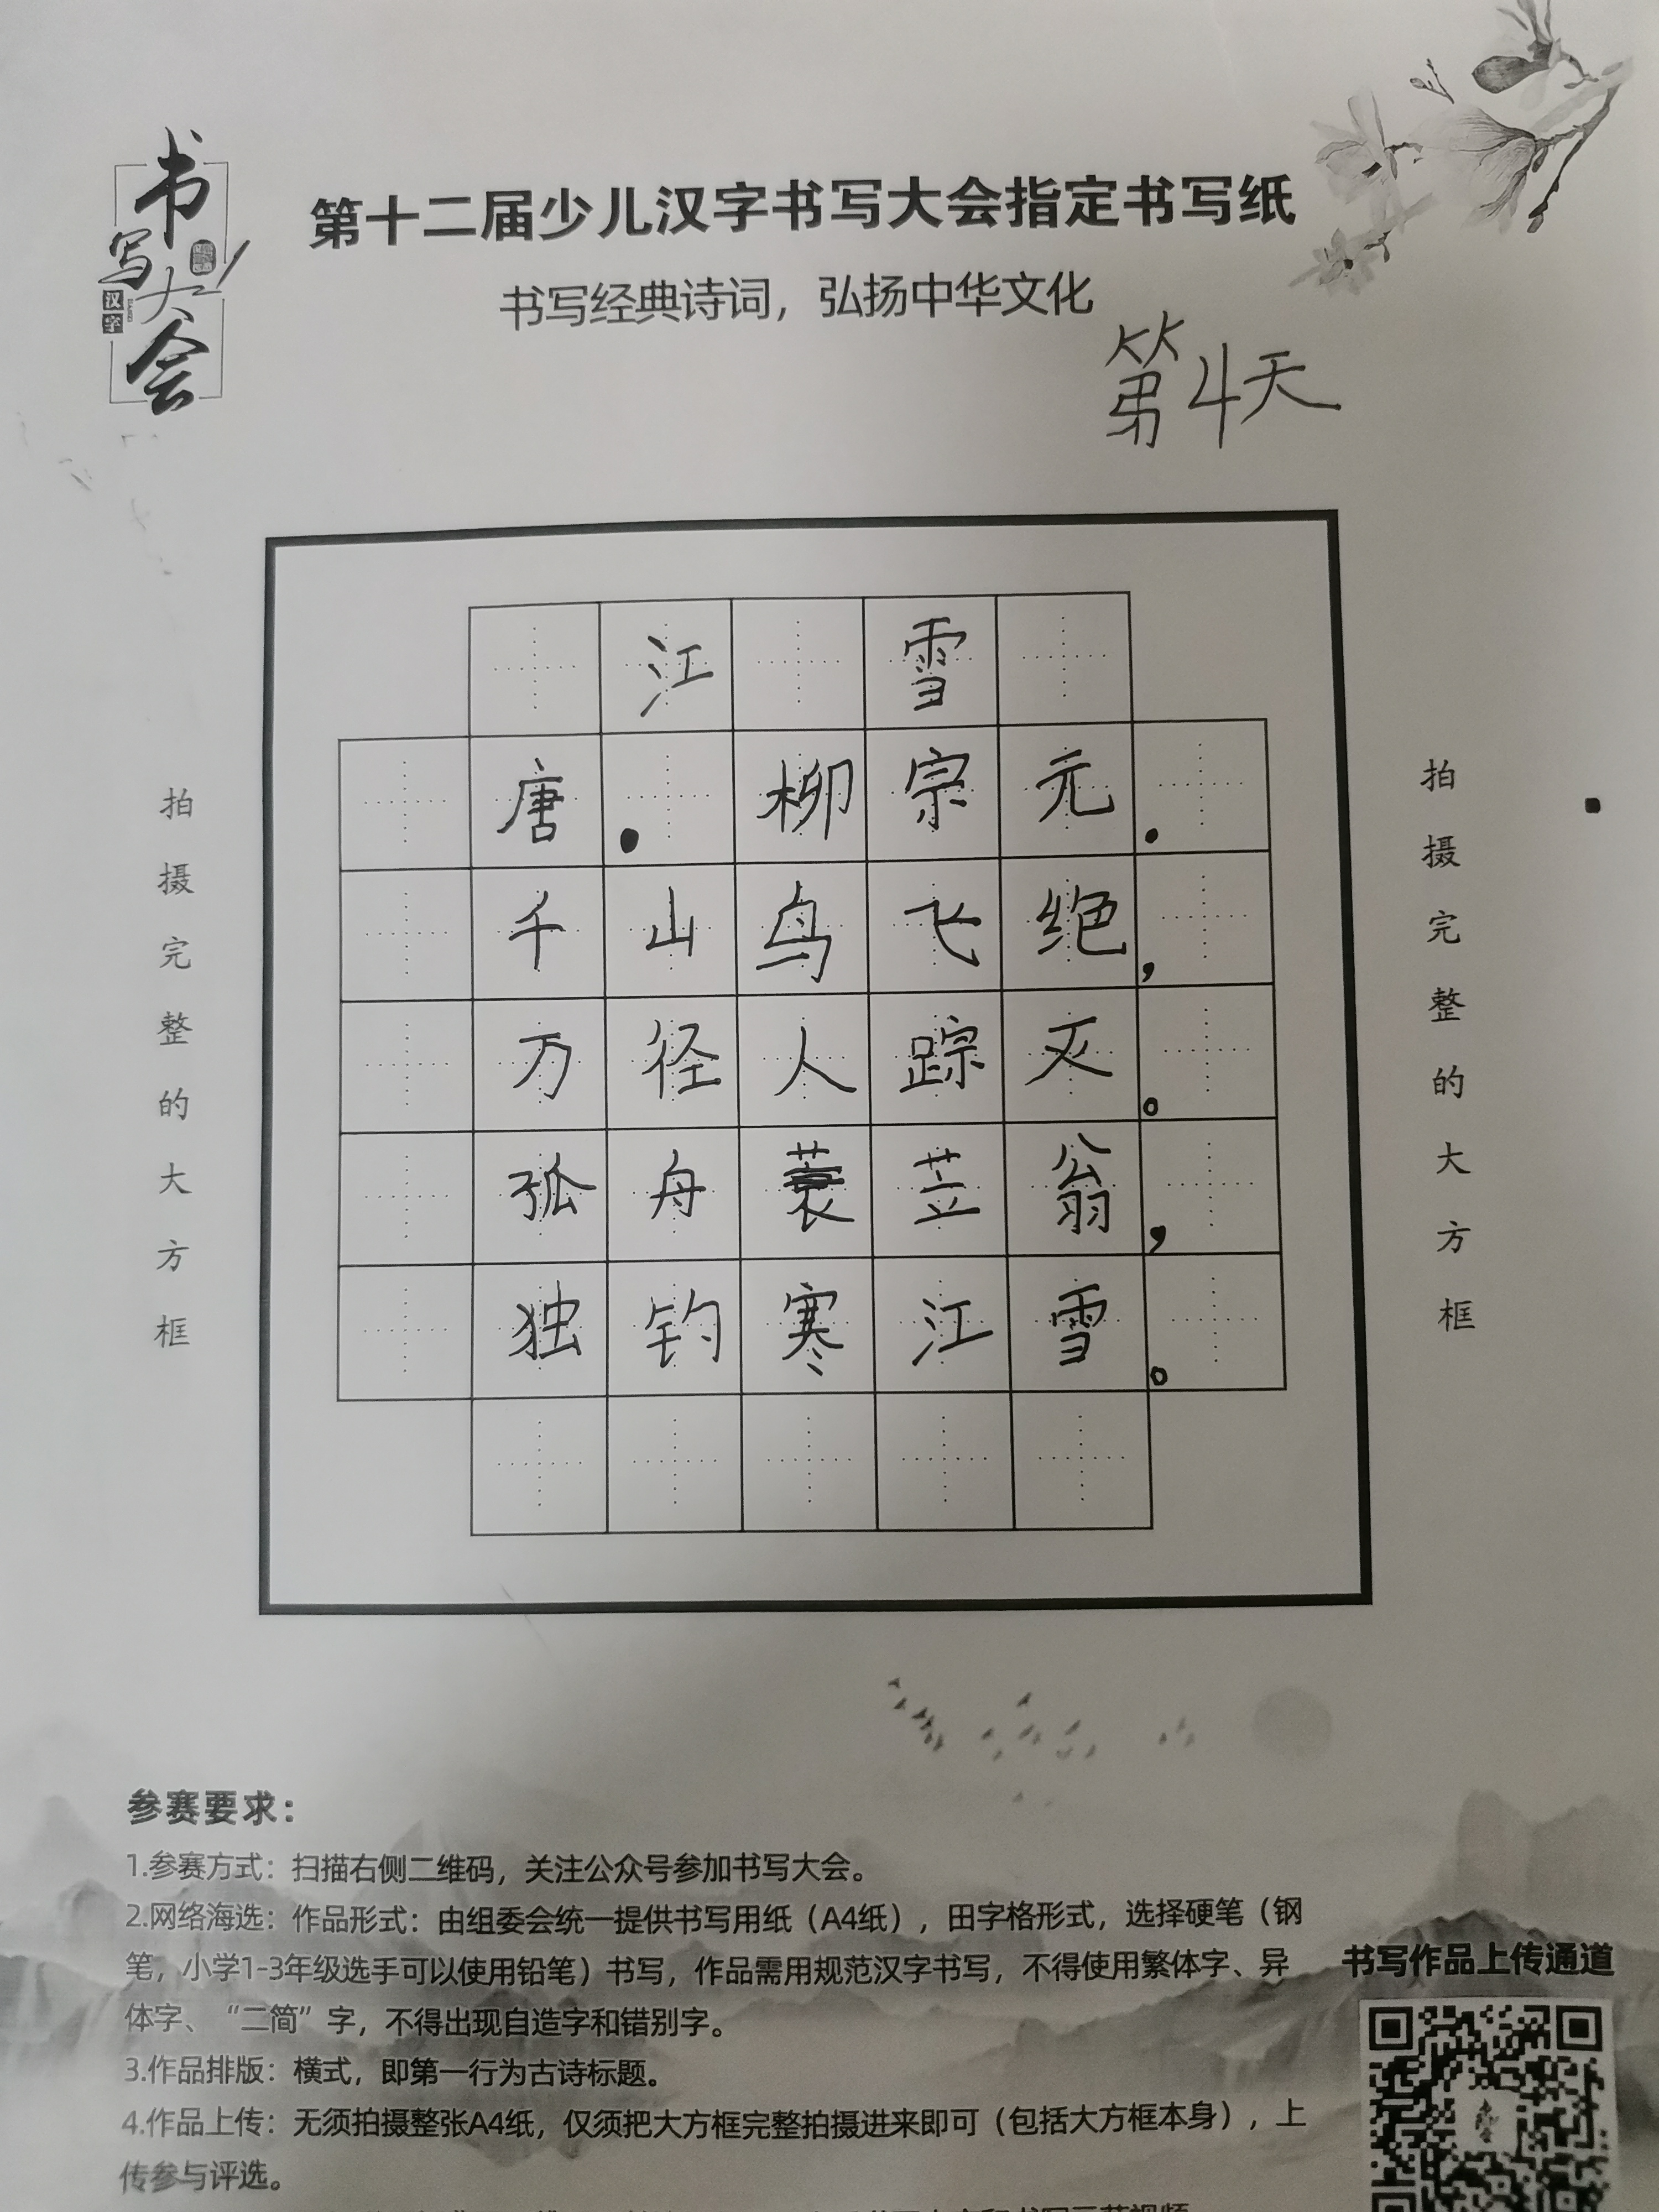 书写大会
汉字
第十二届少儿汉字书写大会指定书写纸
书写经典诗词，弘扬中华文化
第4天
江 雪
唐·柳宗元.
千山鸟飞绝，
万径人踪灭。
孤舟蓑苙翁，
独钓寒江雪。
拍摄完整的大方框
拍摄完整的大方框
参赛要求：
1.参赛方式：扫描右侧二维码，关注公众号参加书写大会。
2.网络海选：作品形式：由组委会统一提供书写用纸（A4纸），田字格形式，选择硬笔（钢
笔，小学1-3年级选手可以使用铅笔）书写，作品需用规范汉字书写，不得使用繁体字、异
体字、“二简”字，不得出现自造字和错别字。
3.作品排版：横式，即第一行为古诗标题。
4.作品上传：无须拍摄整张A4纸，仅须把大方框完整拍摄进来即可（包括大方框本身），上
传参与评选。
书写作品上传通道